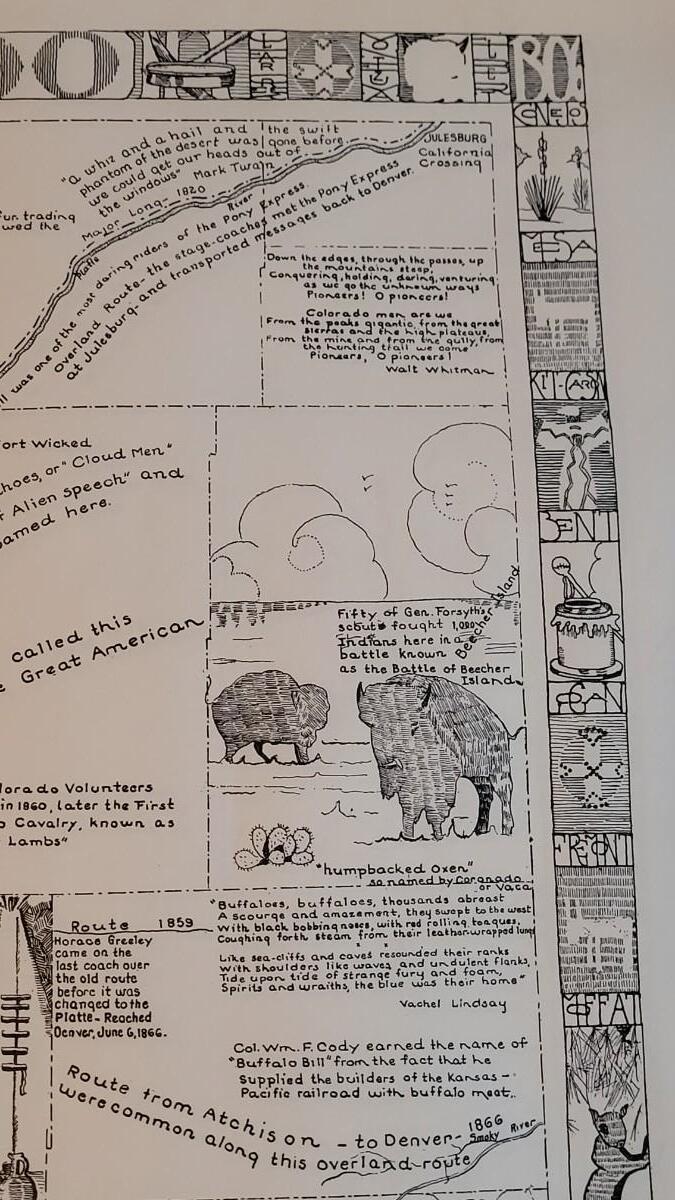 BO
CONEJO
MESA
KIT-CARSON
BENT
LOGAN
FREMONT
MOFFAT
"a whiz and a hail and the swift
phantom of the desert was gone before
we could get our heads out of
the windows" Mark Twain
Major Long - 1820
Platte
River
JULESBURG
California
Crossing
fur trading
wed the
ll was one of the most daring riders of the Pony Express.
Overland Route - the stage-coaches met the Pony Express
at Julesburg - and transported messages back to Denver.
Down the edges, through the passes, up
the mountains steep,
Conquering, holding, daring, venturing
as we go the unknown ways
Pioneers! O pioneers!
Colorado men are we
From the peaks gigantic, from the great
sierras and the high plateaus,
From the mine and from the gully, from
the hunting trail we come,
Pioneers, O pioneers!
Walt Whitman
ort Wicked
hoes, or "Cloud Men"
Alien speech" and
oamed here.
called this
e Great American
Fifty of Gen. Forsyth's
scouts fought 1,000
Indians here in a
battle known
as the Battle of Beecher
Island.
Beecher Island
lorado Volunteers
in 1860, later the First
o Cavalry, known as
Lambs"
"humpbacked Oxen"
so named by Coronado
or Vaca
Route 1859
Horace Greeley
came on the
last coach over
the old route
before it was
changed to the
Platte - Reached
Denver, June 6, 1866.
"Buffaloes, buffaloes, thousands abreast
A scourge and amazement, they swept to the west
With black bobbing noses, with red rolling tongues,
Coughing forth steam from their leather-wrapped lungs
Like sea-cliffs and caves resounded their ranks
With shoulders like waves, and undulent flanks,
Tide upon tide of strange fury and foam,
Spirits and wraiths, the blue was their home"
Vachel Lindsay
Col. Wm. F. Cody earned the name of
"Buffalo Bill" from the fact that he
supplied the builders of the Kansas -
Pacific railroad with buffalo meat.
Route from Atchison - to Denver - 1866
were common along this overland route
Smoky River